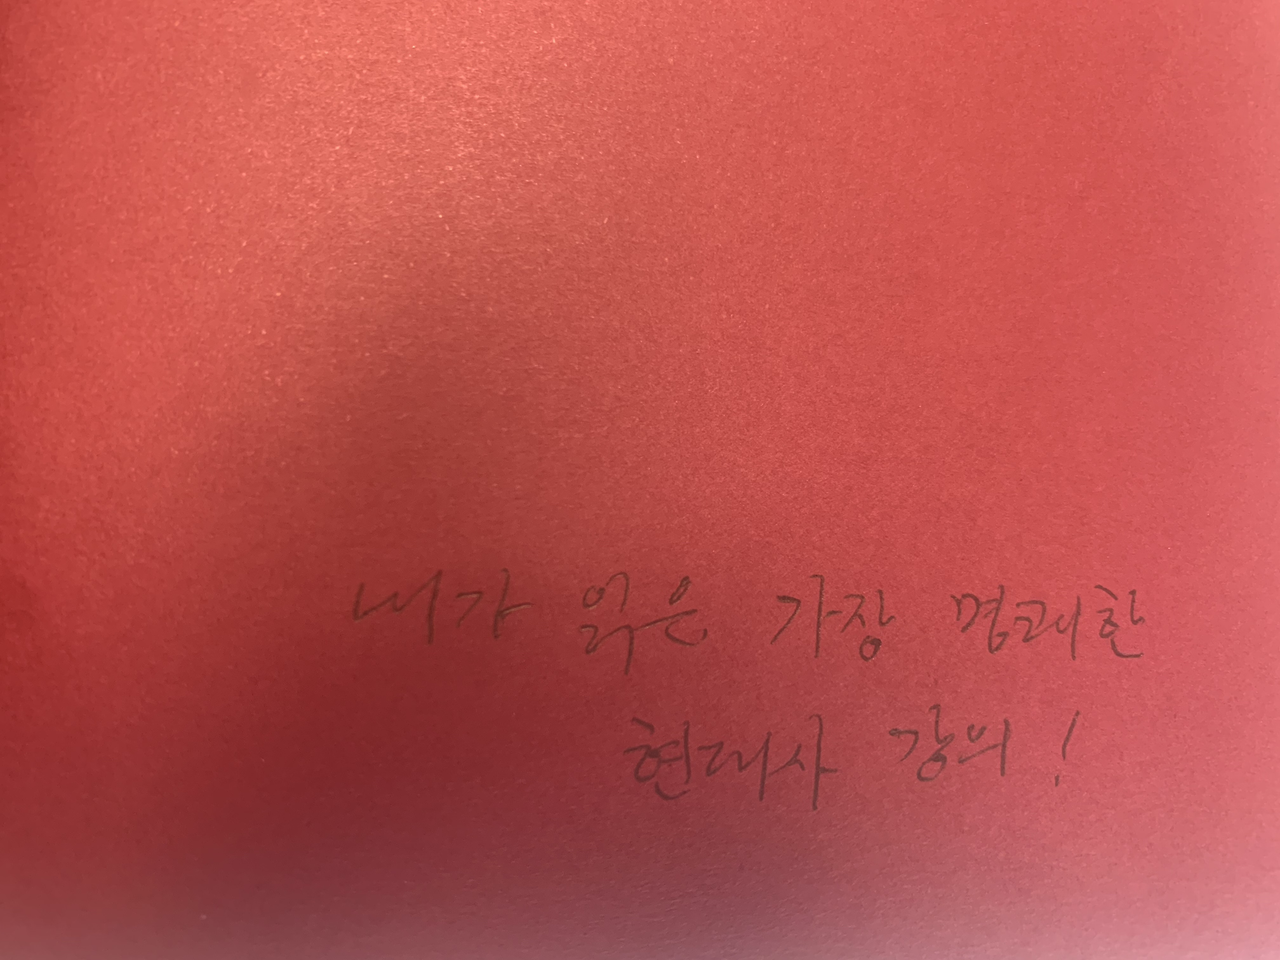 내가 읽은 가장 명쾌한
현대사 강의!